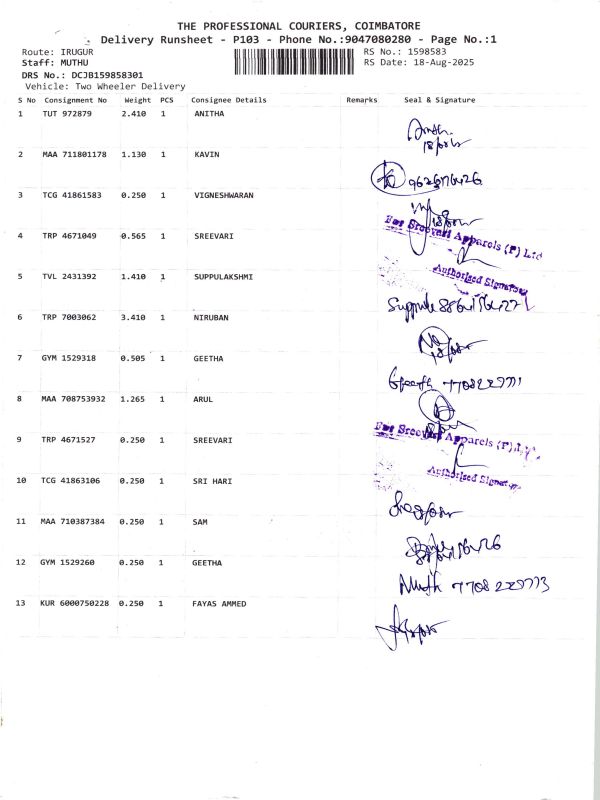 THE PROFESSIONAL COURIERS, COIMBATORE
Delivery Runsheet - P103 - Phone No.:9047080280 - Page No.:1
Route: IRUGUR RS No.: 1598583
Staff: MUTHU RS Date: 18-Aug-2025
DRS No.: DCJB159858301
Vehicle: Two Wheeler Delivery
S No Consignment No Weight PCS Consignee Details Remarks Seal & Signature
1 TUT 972879 2.410 1 ANITHA
2 MAA 711801178 1.130 1 KAVIN
3 TCG 41861583 0.250 1 VIGNESHWARAN
For Sreevari Apparels (P) Ltd
4 TRP 4671049 0.565 1 SREEVARI
Authorised Signatory
5 TVL 2431392 1.410 1 SUPPULAKSHMI
6 TRP 7003062 3.410 1 NIRUBAN
7 GYM 1529318 0.505 1 GEETHA
Geeth
8 MAA 708753932 1.265 1 ARUL
For Sreevari Apparels (P)
9 TRP 4671527 0.250 1 SREEVARI
Authorised Signatory
10 TCG 41863106 0.250 1 SRI HARI
11 MAA 710387384 0.250 1 SAM
12 GYM 1529260 0.250 1 GEETHA
13 KUR 6000750228 0.250 1 FAYAS AMMED